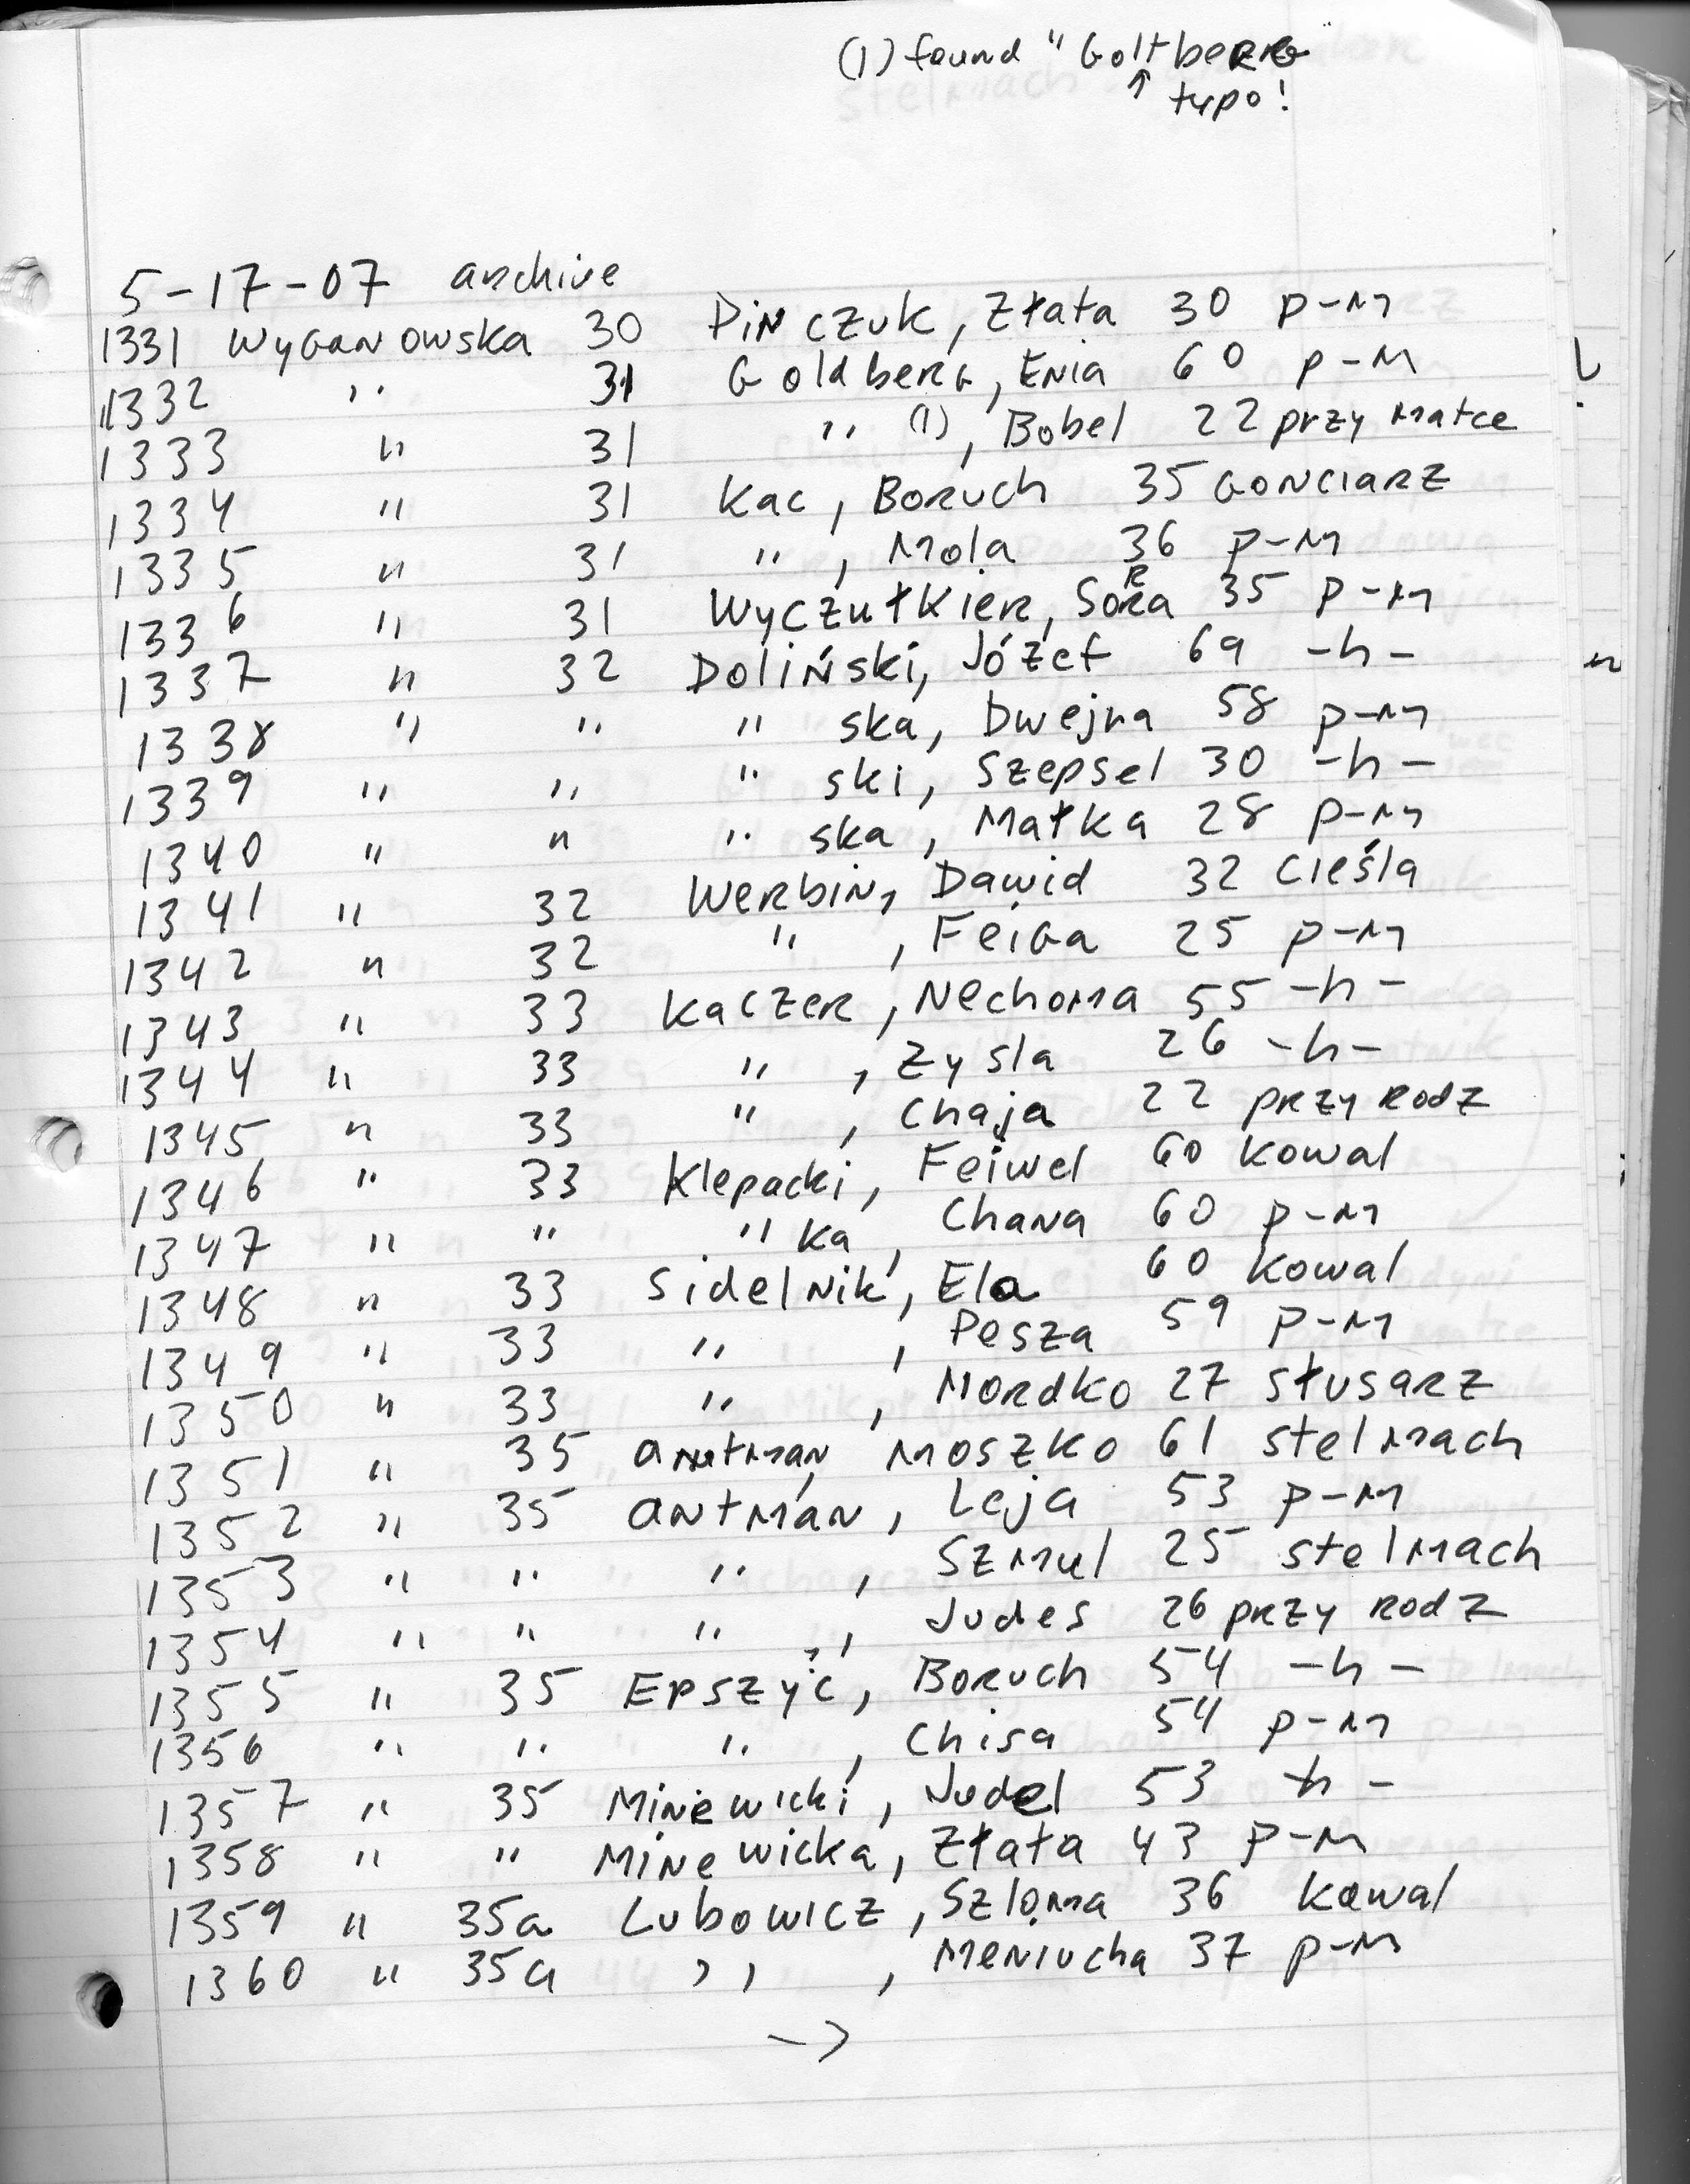 (1) found "Goltberg"
↑ typo!
5-17-07 archive
1331 Wyganowska 30 Pinczuk, Złata 30 p-m
1332 " 31 Goldberg, Enia 60 p-m
1333 " 31 " (1), Bobel 22 przy matce
1334 " 31 Kac, Boruch 35 gonciarz
1335 " 31 ", Mola 36 p-m
1336 " 31 Wyczułkier, Sora 35 p-m
1337 " 32 Doliński, Józef 69 -h-
1338 " " " ska, Dwejra 58 p-m
1339 " " " ski, Szepsel 30 -h-
1340 " " " ska, Małka 28 p-m
1341 " 32 Werbin, Dawid 32 cieśla
1342 " 32 ", Feiga 25 p-m
1343 " 33 Kaczer, Nechoma 55 -h-
1344 " 33 ", Zysla 26 -h-
1345 " 33 ", Chaja 22 przy rodz
1346 " 33 Klepacki, Feiwel 60 kowal
1347 " " " ka, Chana 60 p-m
1348 " 33 Sidelnik, Ela 60 kowal
1349 " 33 ", Pesza 59 p-m
1350 " 33 ", Mordko 27 słusarz
1351 " 35 Antman, Moszko 61 stelmach
1352 " 35 Antman, Leja 53 p-m
1353 " " ", Szmul 25 stelmach
1354 " " ", Judes 26 przy rodz
1355 " 35 Epszyc, Boruch 54 -h-
1356 " " ", Chisa 54 p-m
1357 " 35 Minewicki, Judel 53 -h-
1358 " " Minewicka, Złata 43 p-m
1359 " 35a Lubowicz, Szloma 36 kowal
1360 " 35a ", Meniucha 37 p-m
→